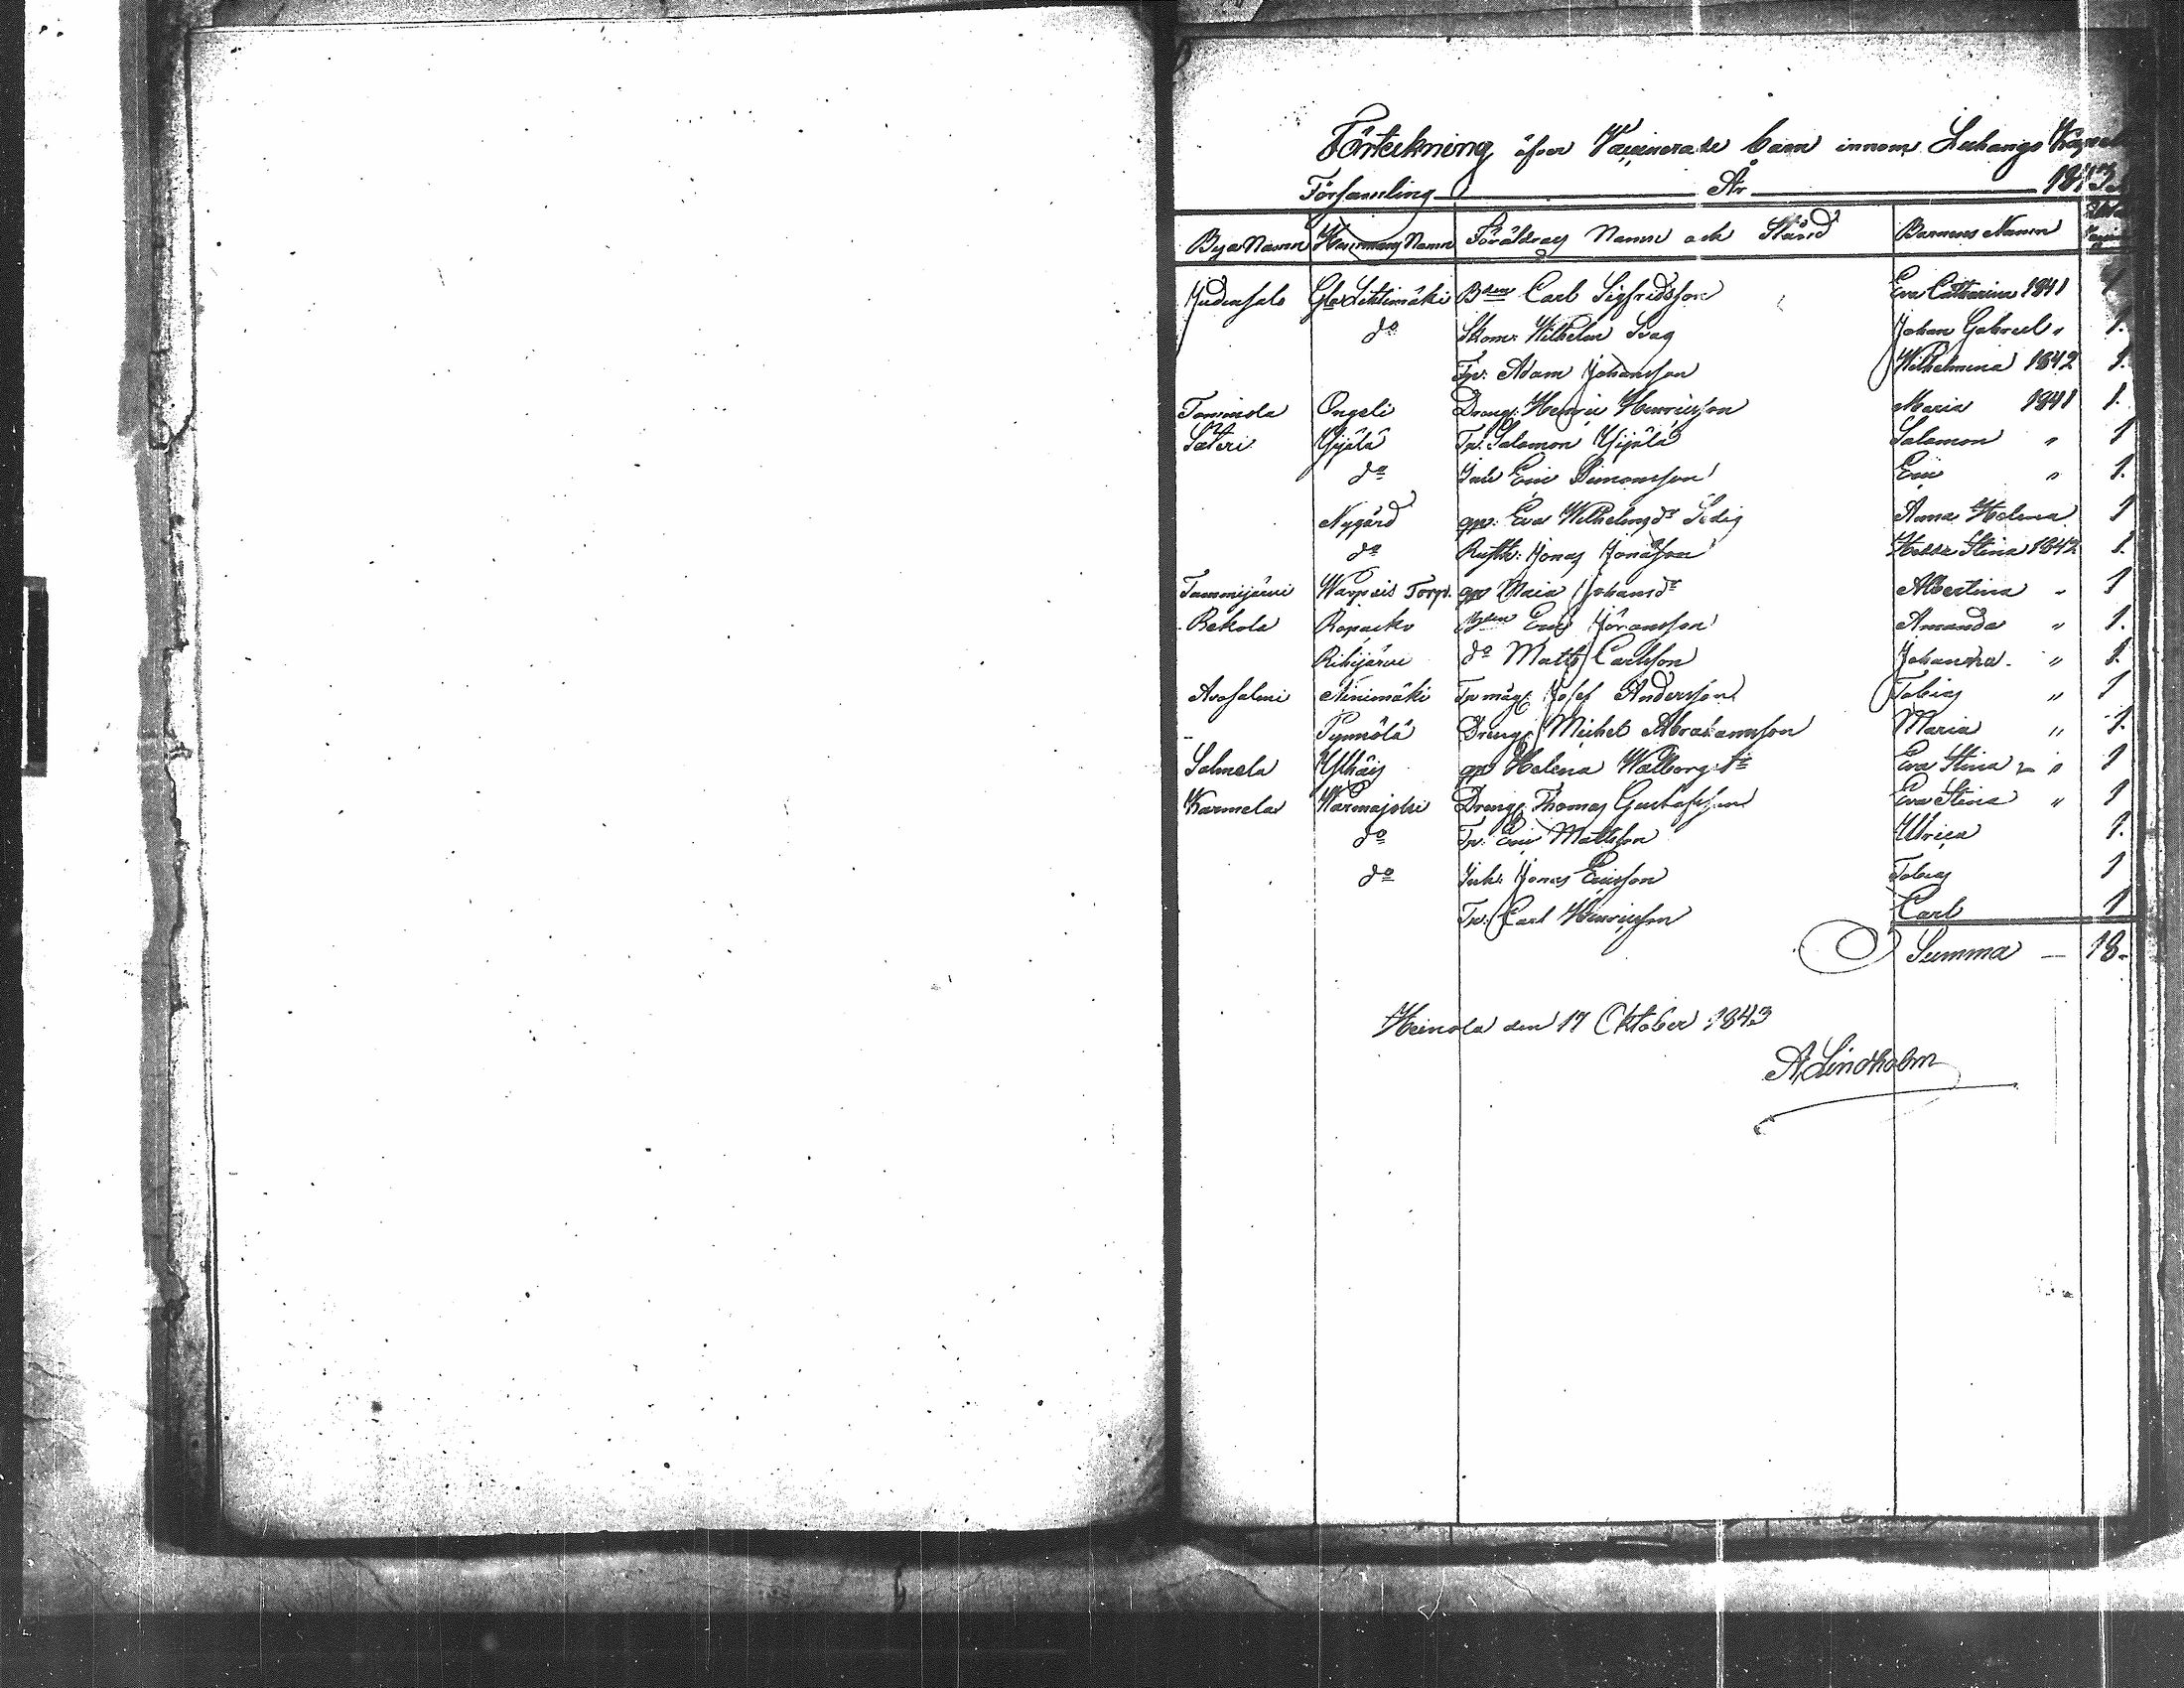 Förteckning öfver Vaccinerade barn innom Luhango Kapell
Församling År 1843
Bya Namn Hemmans Namn Föräldrars Namn och Stånd Barnens Namn
Judinsalo Lehtimäki Bden Carl Sigfridsson Eva Catharina 1841 1
do Skom: Wilhelm Svag Johan Gabriel " 1.
Tp: Adam Johansson Wilhelmina 1842 1.
Tommola Ongeli Dreng: Henric Henricsson Maria 1841 1.
Säteri Yijälä Tp. Salomon Yijälä Salomon " 1
do Inh Eric Simonsson Eric " 1.
Nygård qp: Eva Wilhelmsdr Sedig Anna Helena 1
do Rusth: Jonas Jonasson Hedda Stina 1842 1.
Tammijärvi Warpais Torp. qp Maria Johansdr Albertina " 1
Rekola Ropakko Bden Eric Jöransson Amanda " 1.
Rihijärvi do Matts Carlsson Johanna " 1.
Avosalmi Ninimäki Tp måg: Josef Andersson Tobias " 1
Pynnölä Dreng: Michel Abrahamsson Maria " 1.
Salmela Ylhäis qp Helena Walborg Eva Stina " 1
Karmela Warmajoki Dreng: Thomas Gustafsson Eva Stina " 1
do Tp: Eric Mattsson Ulrica 1.
do Inh: Jonas Ericsson Tobias 1
Tp: Carl Henricsson Carl 1
Summa — 18.
Heinola den 17 Oktober 1843
A. Lindholm